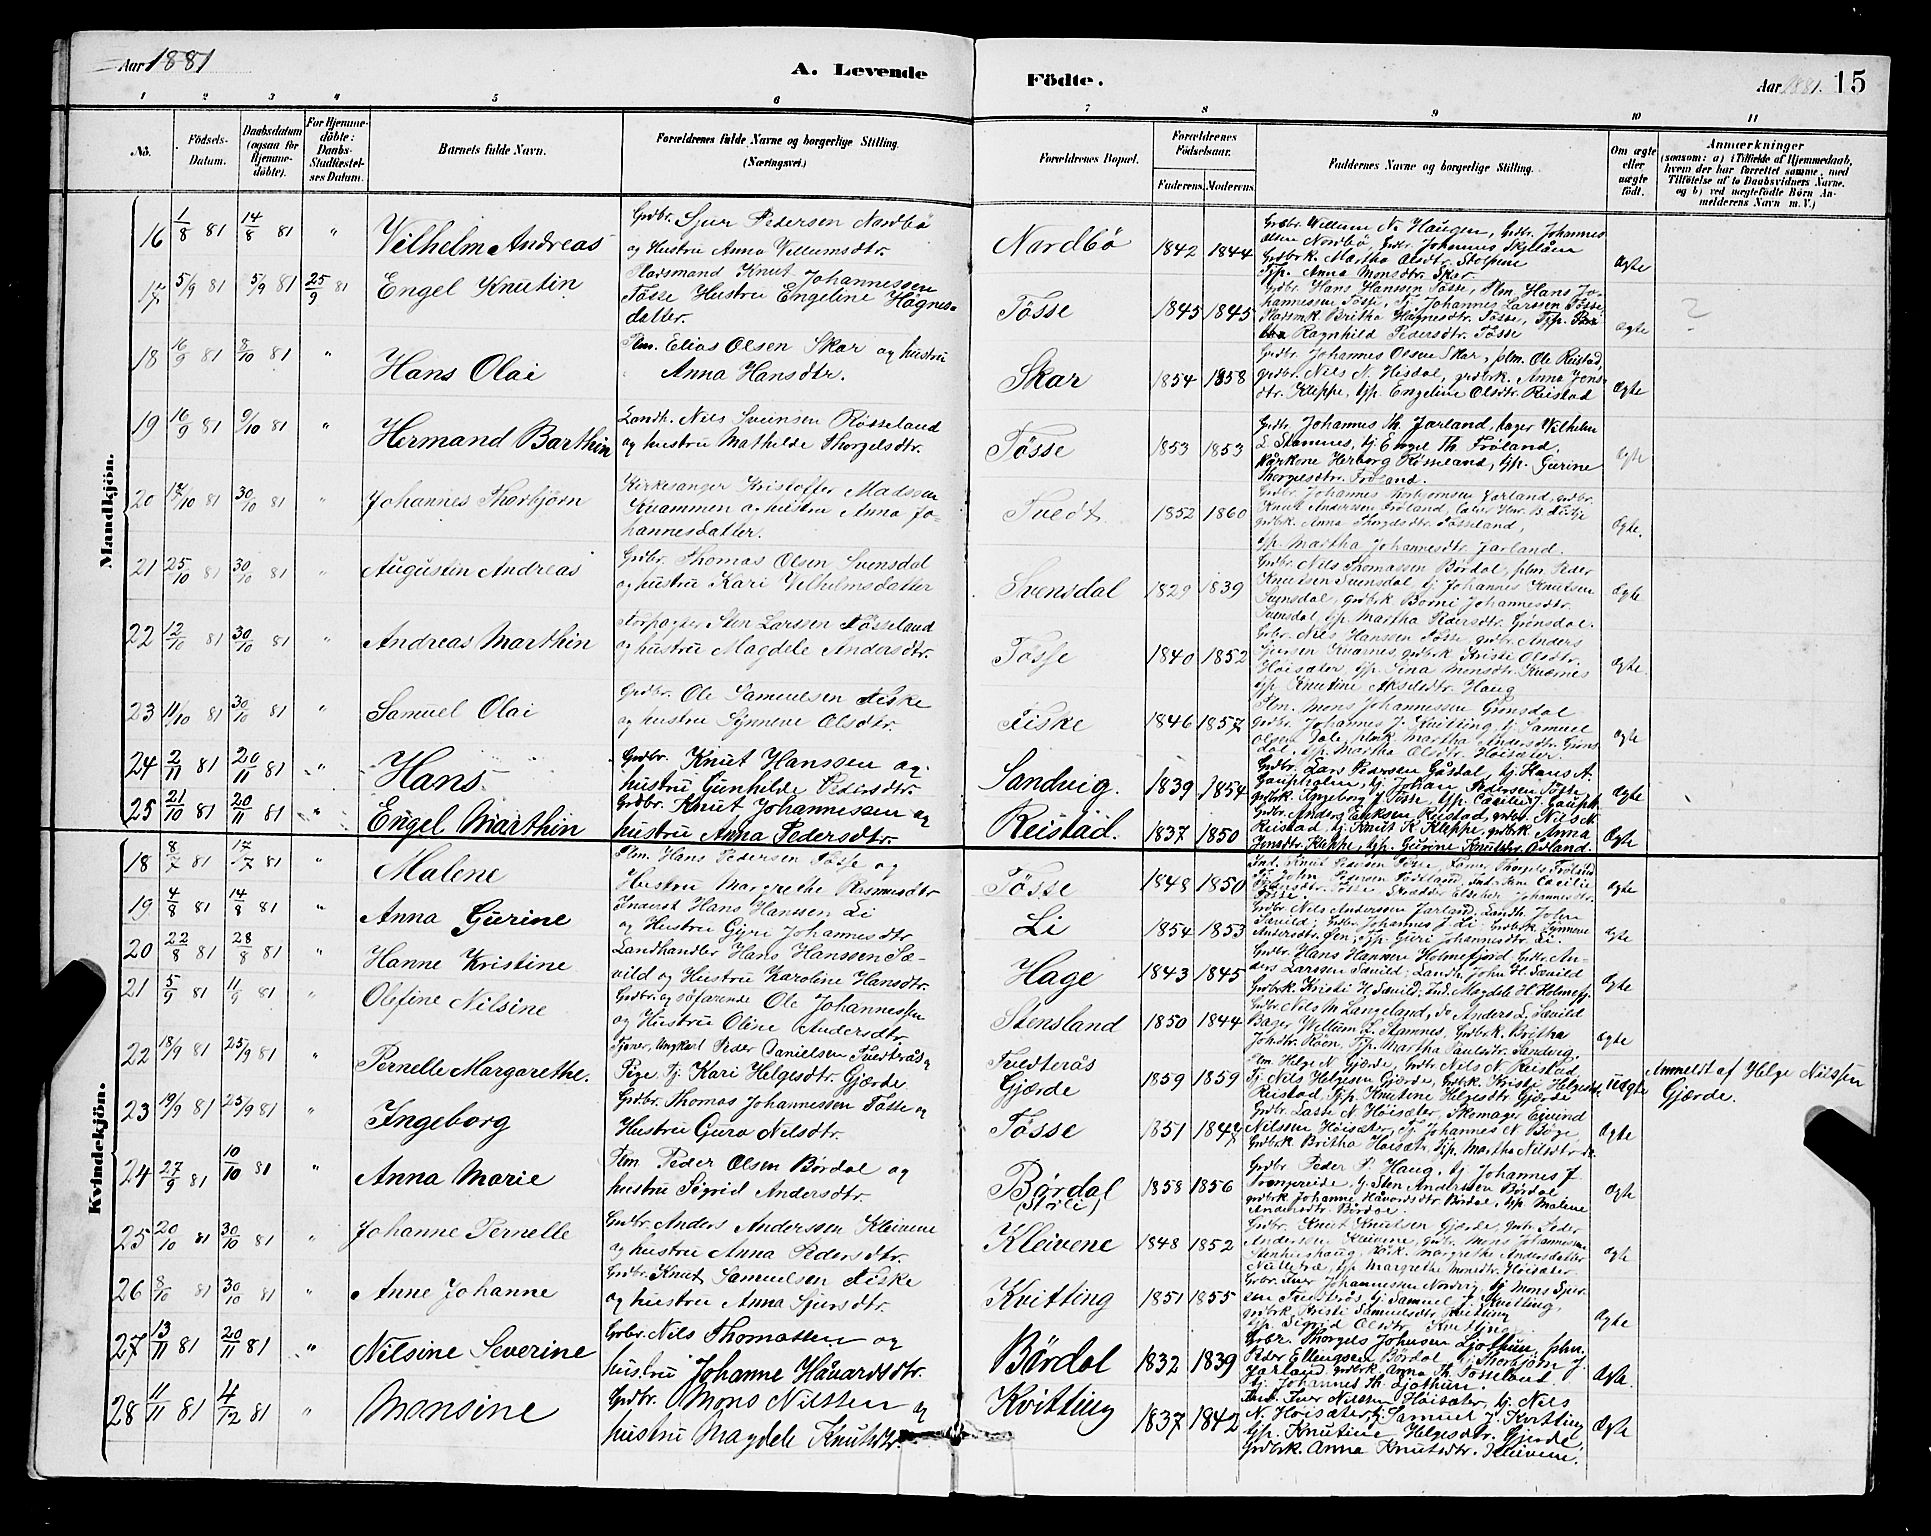 Aar 1881
A. Levende
Födte.
Aar 1881. 15
1 2 3 4 5 6 7 8 9 10 11
No. Födsels-Datum. Daabsdatum (ogsaa for Hjemmedöbte). For Hjemmedöbte: Daabs-Stadfæstelses Datum. Barnets fulde Navn. Forældrenes fulde Navne og borgerlige Stilling. (Næringsvei.) Forældrenes Bopæl. Forældrenes Födselsaar. Faderens. Moderens. Faddernes Navne og borgerlige Stilling. Om ægte eller uægte födt. Anmærkninger (saasom: a) i Tilfælde af Hjemmedaab, hvem der har forrettet samme, med Tilföielse af to Daabsvidners Navne, og b) ved uægtefödte Börn Anmelderens Navn m. V.)
Mandkjön.
16 1/8 81 14/8 81 " Vilhelm Andreas
Grdbr. Sjur Pedersen Nordbö
og Hustru Anna Villumsdtr.
Nordbö 1842 1844
Grdbr. Willum N. Haugen, Grdbr. Johannes
Olsen Nordbö, Grdbr. Johannes Skjelåen
Grdbrk. Martha Olsdtr. Stolpene
Tjp. Anna Monsdtr. Skar.
Ægte
17 5/9 81 5/9 81 25/9 81 Engel Knutin
Pladsmand Knut Johannessen
Tösse Hustru Engeline Högnes-
datter.
Tösse 1845 1845
Grdbr. Hans Hanssen Tösse, Plm. Hans Jo-
hannessen Tösse, Tj. Johannes Larssen Tösse,
Pladsmk. Britha Högnesdtr. Tösse, Tjp.
Ragnhild Pedersdtr. Tösse
Ægte ?
18 16/9 81 8/10 81 " Hans Olai
Plm. Elias Olsen Skar og hustru
Anna Hansdtr.
Skar 1854 1858
Grdbr. Johannes Olsen Skar, plm. Ole Reistad,
grdbr. Nils N. Hisdal, grdbrk. Anna Jens-
dtr. Kleppe, tjp. Engeline Olsdtr. Reistad
Ægte
19 16/9 81 9/10 81 " Hermand Barthin
Landh. Nils Sveinsen Rösseland
og hustru Mathilde Thorgelsdtr.
Tösse 1853 1853
Grdbr. Johannes Th. Jarland, bager Vilhelm
L. Stamnes, tj. Engel Th. Fröland,
Kårkone Herborg Rösseland, tjp. Gurine
Thorgelsdtr. Fröland.
Ægte
20 17/10 81 30/10 81 " Johannes Thorbjörn
Kirkesanger Kristoffer Madssen
Kvammen og hustru Anna Jo-
hannesdatter.
Tvedt. 1852 1860
Grdbr. Johannes Thorbjørnsen Jarland, grdbr.
Knut Andersen Fröland,
grdbrk. Anna Thorgelsdtr. Tösseland,
tjp. Martha Johannesdtr. Jarland.
Ægte.
21 25/10 81 30/10 81 " Augustin Andreas
Grdbr. Thomas Olsen Svensdal
og hustru Kari Vilhelmsdatter
Svensdal 1829 1839
Grdbr. Nils Thomassen Bördal, plm. Peder
Knutsen Svensdal, tj. Johannes Knutsen
Svensdal, grdbrk. Borni Johannesdtr.
Svensdal, tjp. Martha Pedersdtr. Grönsdal.
Ægte
22 12/10 81 30/10 81 " Andreas Marthin
Forpagter Sten Larssen Tösseland
og hustru Magdele Andersdtr.
Tösse 1840 1852
Grdbr. Nils Hanssen Tösse, grdbr. Anders
Sjursen Kvernes, grdbrk. Kristi Olsdtr.
Höisæter, tjp. Sina Monsdtr. Kvernes
tjp. Knutine Akseldtr. Haug
Ægte
23 11/10 81 30/10 81 " Samuel Olai
Grdbr. Ole Samuelsen Fiske
og hustru Synneve Olsdtr.
Fiske 1846 1857
Plm. Mons Johannessen Grönsdal
Grdbr. Johannes J. Kvitting, tj. Samuel
Olsen Dale, plmk. Martha Andersdtr. Gröns
dal, tjp. Martha Olsdtr. Höisæter.
Ægte
24 2/11 81 20/11 81 " Hans
Grdbr. Knut Hanssen og
hustru Gunhilde Pedersdtr.
Sandvig. 1839 1854
Grdbr. Lars Pedersen Gåsdal, tj. Hans A.
Gaupholm, tj. Johan Pedersen Tösse
grdbrk. Ingeborg J. Tösse, tjp. Cecilie J. Gauph.
Ægte
25 21/10 81 20/11 81 " Engel Marthin
Grdbr. Knut Johannessen og
hustru Anna Pedersdtr.
Reistad. 1837 1850
Grdbr. Anders Eriksen Reistad, grdbr. Nils N.
Reistad, tj. Knut K. Kleppe, grdbrk. Anna
Jensdtr. Kleppe, tjp. Gurine Knutsdtr. Årland.
Ægte
Kvindekjön.
18 8/7 81 17/7 81 " Malene
Plm. Hans Pedersen Tösse og
Hustru Margrethe Rasmusdtr
Tösse 1848 1850
Ind. Knut Pedersen Tösse,
Tj. John Pedersen Födtland, Ind. Cecilie
Pedersdtr. Tösse, Johannesdtr.
Tösse.
Ægte
19 4/8 81 14/8 81 " Anna Gurine
Inderst Hans Hanssen Li
og Hustru Gyri Johannesdtr
Li 1854 1853
Grdbr. Nils Anderssen Jarland, Landh. John
Sævild, Grdbr. Johannes J. Li, Grdbrk. Synneve
Andersdtr. Öen, Tjp. Guri Johannesdtr. Li.
Ægte
20 22/8 81 28/8 81 " Hanne Kristine
Landhandler Hans Hanssen Sæ-
vild og Hustru Karoline Hansdtr.
Hage 1843 1845
Grdbr. Hans Hansen Holmefjord, Grdbr. An-
ders Larssen Sævild, Landh. John H. Sævild
Grdbrk. Kristi H. Sævild, Ind. Magdele H. Holmefj.
Ægte
21 5/9 81 11/9 81 " Olefine Nilsine
Grdbr. og söfarende Ole Johannessen
og Hustru Oline Andersdtr
Stensland 1850 1844
Grdbr. Nils M. Langeland, do Anders L. Sævild
Bager Willum L. Stamnes, Grdbrk. Britha
Johsdtr. Röen, Tjp. Martha Paulsdtr. Sandvig.
Ægte
22 18/9 81 25/9 81 " Pernelle Margarethe.
Tjener, Ungkarl Peder Danielsen Tvedterås og
Pige tj. Kari Helgesdtr. Gjærde
Tvedterås
Gjærde 1859 1859
Plm. Helge N. Gjærde, Grdbr. Nils N. Reistad,
Tj. Nils Helgesen Gjærde, Grdbrk. Kristi Helgesdtr.
Reistad, Tjp. Knutine Helgesdtr. Gjærde
uægte
Anmeldt af Helge Nilssen
Gjærde.
23 19/9 81 25/9 81 " Ingeborg
Grdbr. Thomas Johannessen Tösse og
Hustru Guro Nilsdtr.
Tösse 1851 1848
Grdbr. Lasse N. Höisæter, Skomager Eivind
Nilssen Höisæter, Tj. Johannes N. Böge,
Grdbrk. Britha Höisæter, Tjp. Martha Nilsdtr. do
Ægte
24 27/9 81 10/10 81 " Anna Marie
Plm Peder Olsen Bördal og
hustru Sigrid Andersdtr.
Bördal
(Stöle) 1858 1856
Grdbr. Peder P. Haug, tj. Johannes J.
Trengereide, tj. Sten Anderssen Bördal
grdbrk. Johanne Håvardsdtr. Bördal, tjp. Malene
Andersdtr. Bördal.
Ægte
25 20/10 81 30/10 81 " Johanne Pernelle
Grdbr. Anders Anderssen Kleivene
og hustru Anna Pedersdtr.
Kleivene 1848 1852
Grdbr. Knut Knutsen Gjærde, grdbr. Peder
Andersen Kleivene, grdbr. Mons Johannessen
Stenhushaug, Margrethe Andersdatter
tjp. Margrethe Monsdtr. Höisæter.
Ægte
26 8/10 81 30/10 81 " Anne Johanne
Grdbr. Knut Samuelsen Fiske
og hustru Anna Sjursdtr.
Kvitting 1851 1855
Grdbr. Iver Johannessen Nordvig, tj. Mons Sjur-
sen Tvedterås, tj. Samuel J. Kvitting,
grdbrk. Kristi Samuelsdtr. Kvitting
tjp. Sigrid Olsdtr. Kvitting
Ægte
27 13/11 81 20/11 81 " Nilsine Severine
Grbr. Nils Thomassen og
hustru Johanne Håvardsdtr.
Bördal 1832 1839
Grbr. Thorgels Johnsen Ljothun, plm.
Peder Ellingsen Bördal, tj. Thorbjörn J.
Jarland, grdbrk. Anna Th. Tösseland
tj. Johannes Th. Ljothun.
Ægte.
28 11/11 81 4/12 81 " Monsine
Grdbr. Mons Nilssen og
hustru Magdele Knutsdtr.
Kvitting 1837 1842
Ind. Iver Nilssen Höisæter, tj. Nils
N. Höisæter, tj. Samuel J. Kvitting
tjp. Knutine Helgesdtr. Gjerde,
Grdbrk. Anna Knutsdtr. Kleivene.
Ægte